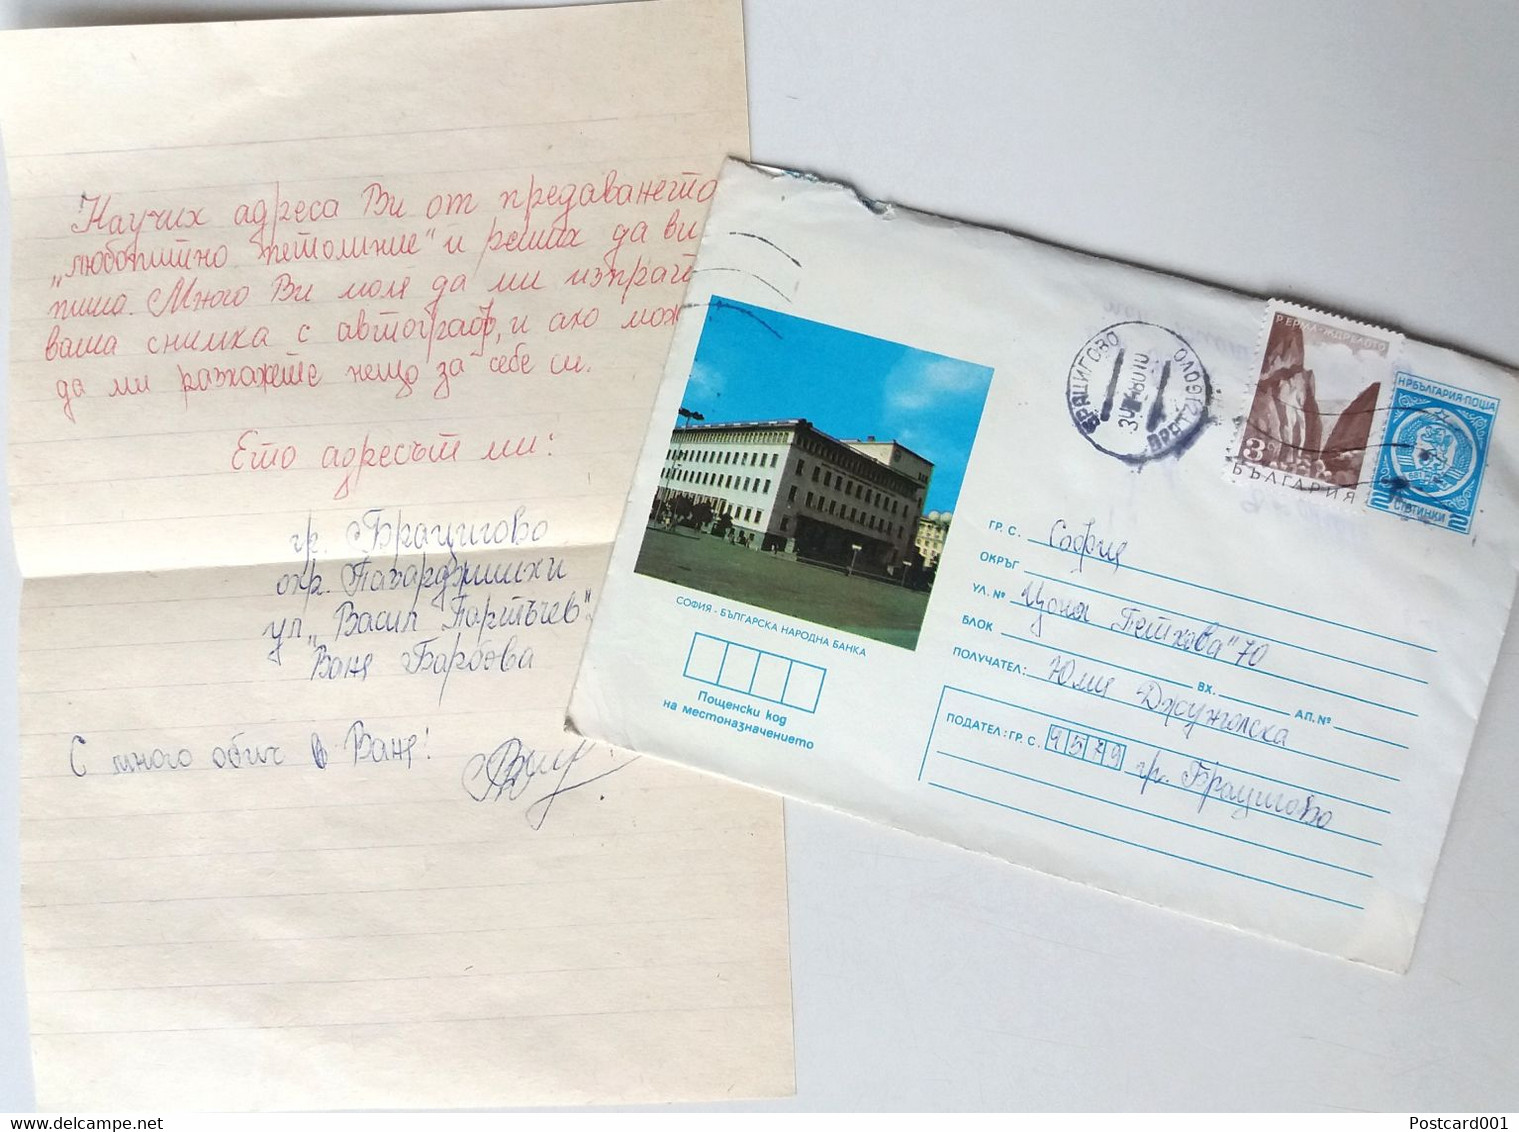 Научих адреса Ви от предаването
„Любопитно петолиние" и реших да ви
пиша. Много Ви моля да ми изпрат
ваша снимка с автограф, и ако мож
да ми разкажете нещо за себе си.
Ето адресът ми:
гр. Брацигово
окр. Пазарджишки
ул „Васил Партъчев"
Ване
С много обич Ване!
СОФИЯ - БЪЛГАРСКА НАРОДНА БАНКА
Пощенски код
на местоназначението
БРАЦИГОВО
РЕРМА-ЖДРЕЛОТО
3
БЪЛГАРИЯ
НР БЪЛГАРИЯ·ПОЩА
СТОТИНКИ
ГР. С. София
ОКРЪГ
УЛ. № Цона Петкова" 70
БЛОК ВХ. АП. №
ПОЛУЧАТЕЛ: Юлия
ПОДАТЕЛ: ГР. С. 4579 гр. Брацигово
Postcard001